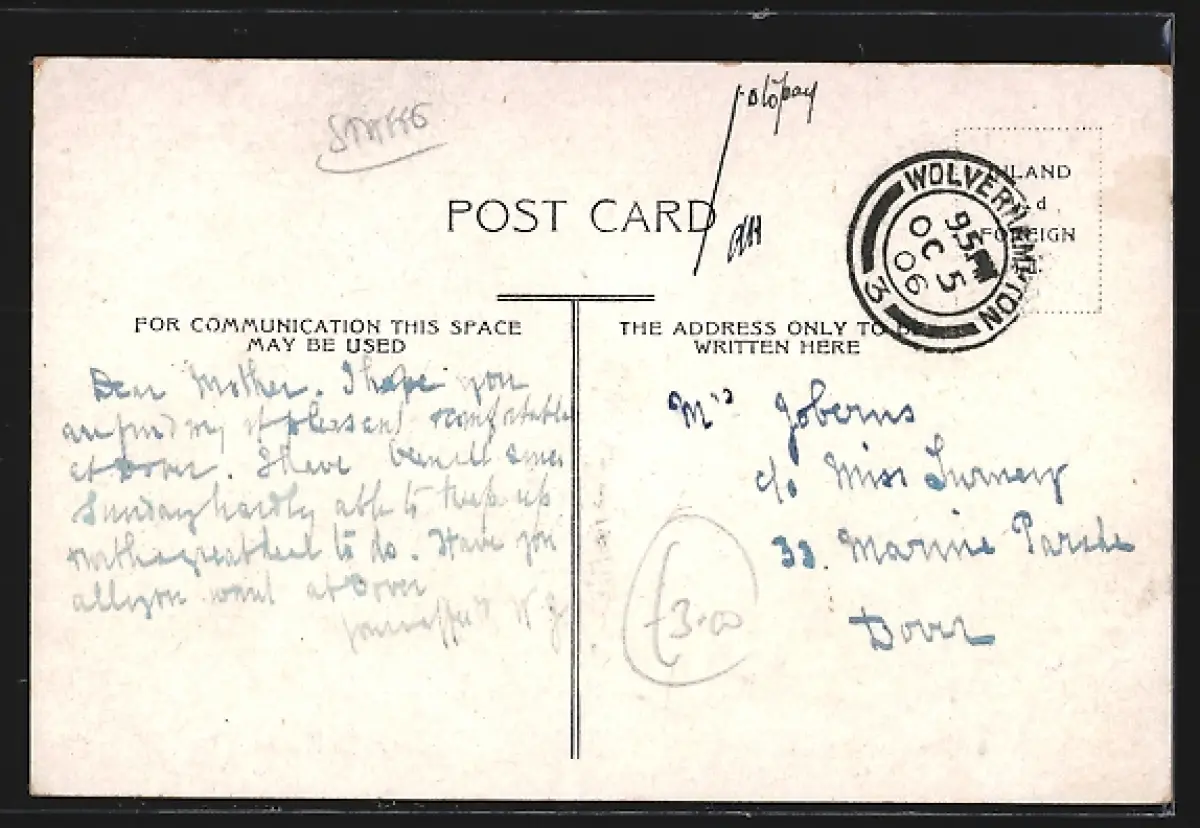 STAFFS
1d to pay
POST CARD
WOLVERHAMPTON
9.5 PM
OC 5
06
3
INLAND
d
FOREIGN
FOR COMMUNICATION THIS SPACE
MAY BE USED
THE ADDRESS ONLY TO BE
WRITTEN HERE
Dear Mother. I hope you
are finding it pleasant & comfortable
at Dover. I have been ill since
Sunday hardly able to keep up
with a great deal to do. Have you
all you want at Dover
Your afft W.J.
Mrs Joberns
c/o Miss Surney
33. Marine Parade
Dover
£3.00